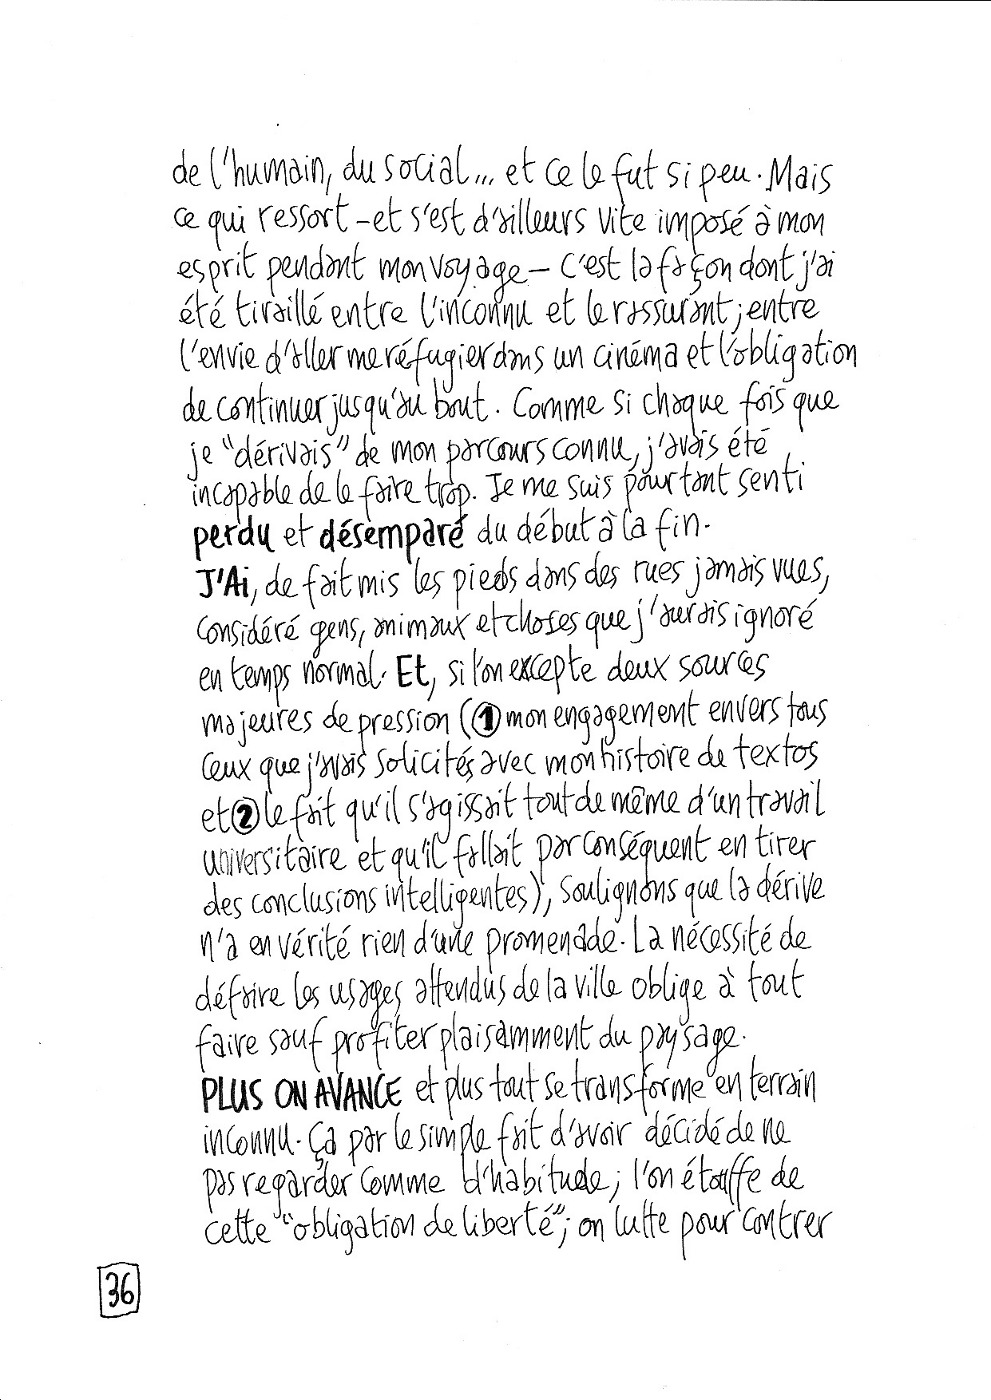 de l'humain, du social... et ce le fut si peu. Mais
ce qui ressort – et s'est d'ailleurs vite imposé à mon
esprit pendant mon voyage – c'est la façon dont j'ai
été tiraillé entre l'inconnu et le rassurant ; entre
l'envie d'aller me réfugier dans un cinéma et l'obligation
de continuer jusqu'au bout. Comme si chaque fois que
je "dérivais" de mon parcours connu, j'avais été
incapable de le faire trop. Je me suis pourtant senti
perdu et désemparé du début à la fin.
J'Ai, de fait mis les pieds dans des rues jamais vues,
considéré gens, animaux et choses que j'aurais ignoré
en temps normal. Et, si l'on excepte deux sources
majeures de pression (① mon engagement envers tous
ceux que j'avais solicités avec mon histoire de textos
et ② le fait qu'il s'agissait tout de même d'un travail
universitaire et qu'il fallait par conséquent en tirer
des conclusions intelligentes), soulignons que la dérive
n'a en vérité rien d'une promenade. La nécessité de
défaire les usages attendus de la ville oblige à tout
faire sauf profiter plaisamment du paysage.
PLUS ON AVANCE et plus tout se transforme en terrain
inconnu. Ça par le simple fait d'avoir décidé de ne
pas regarder comme d'habitude ; l'on étouffe de
cette "obligation de liberté" ; on lutte pour contrer
36